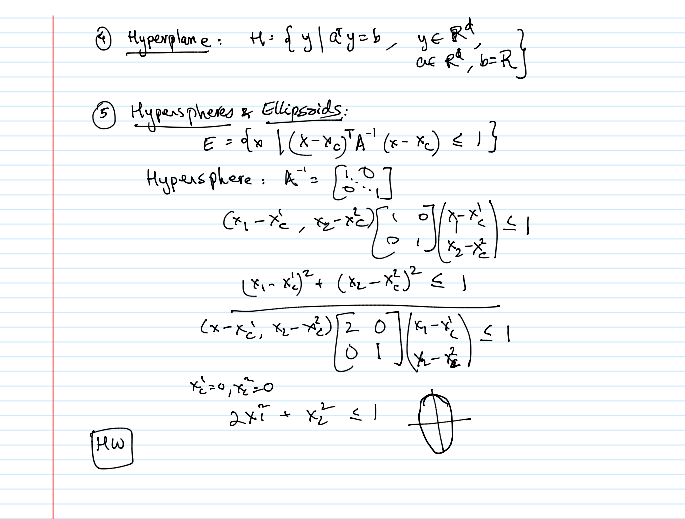 ④ Hyperplane: H = { y | aᵀy = b, y ∈ ℝᵈ,
a ∈ ℝᵈ, b = R }
⑤ Hyperspheres & Ellipsoids:
E = { x | (x - x_c)ᵀ A⁻¹ (x - x_c) ≤ 1 }
Hypersphere: A⁻¹ = [1. 0
0 ⋱ 1]
(x₁ - x_c¹, x₂ - x_c²) [1 0
0 1] (x₁ - x_c¹
x₂ - x_c²) ≤ 1
(x₁ - x_c¹)² + (x₂ - x_c²)² ≤ 1
(x - x_c¹, x₂ - x_c²) [2 0
0 1] (x₁ - x_c¹
x₂ - x_c²) ≤ 1
x_c¹ = 0, x_c² = 0
2x₁² + x₂² ≤ 1
HW